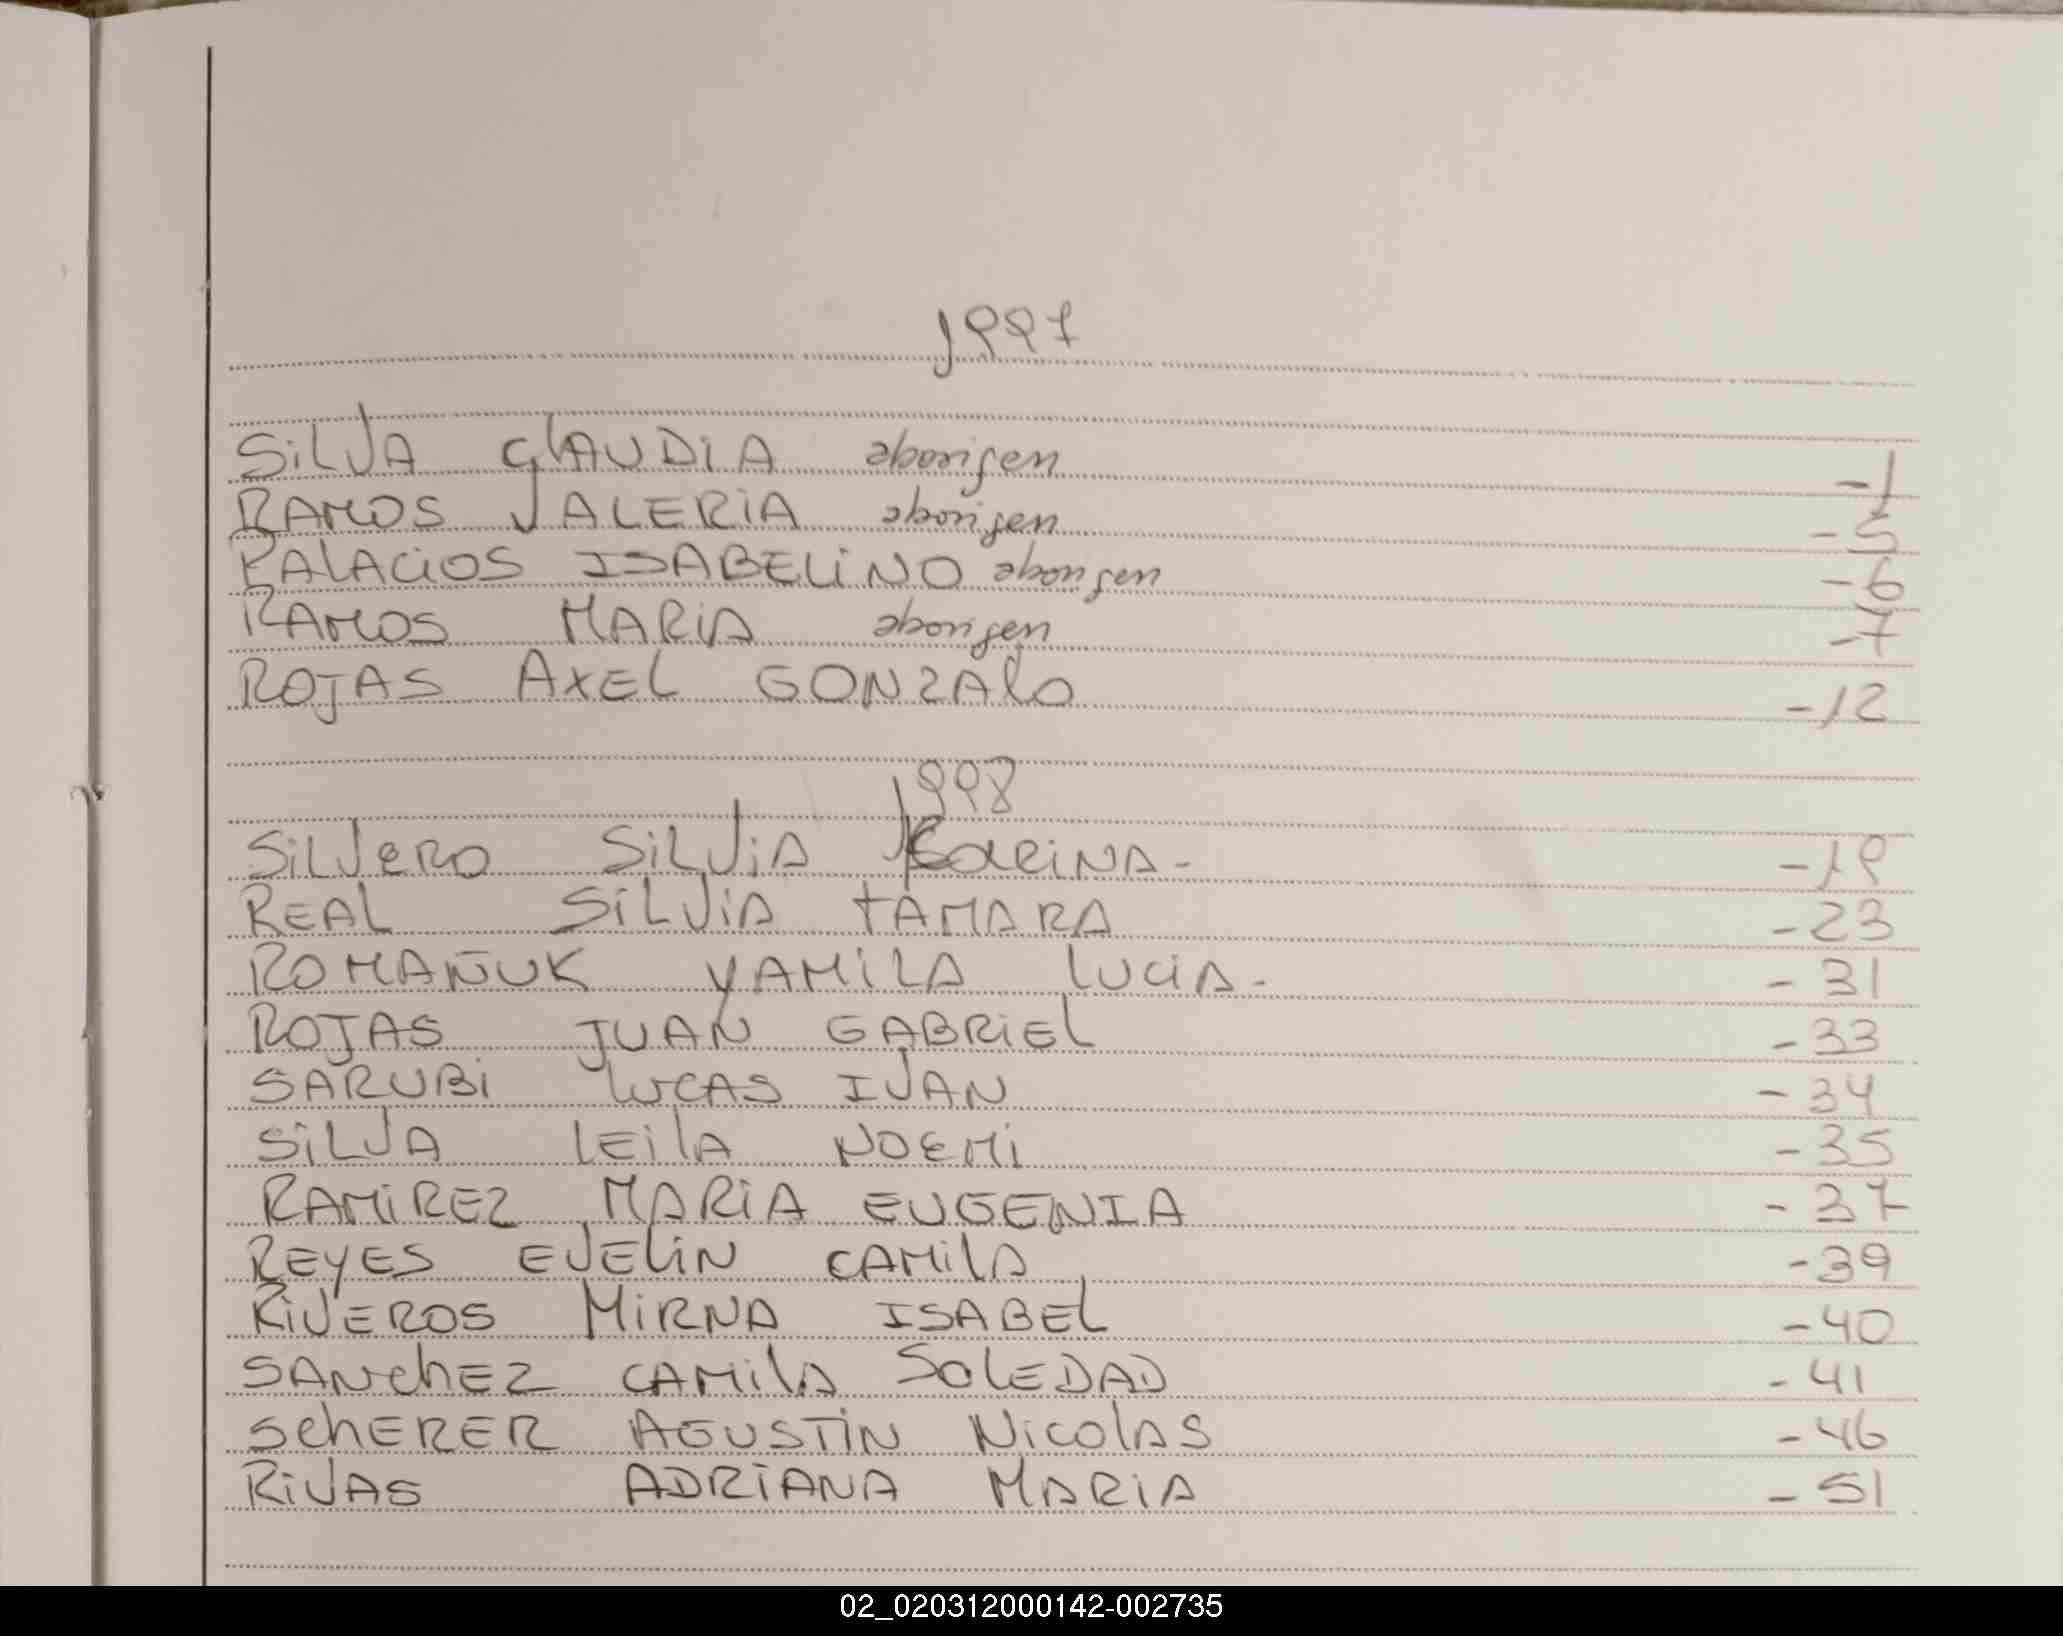 1997
SILVA CLAUDIA aborigen -1
RAMOS VALERIA aborigen -5
PALACIOS ISABELINO aborigen -6
RAMOS MARIA aborigen -7
ROJAS AXEL GONZALO -12
1998
SILVERO SILVIA KARINA- -19
REAL SILVIA TAMARA -23
ROMAÑUK YAMILA LUCIA- -31
ROJAS JUAN GABRIEL -33
SARUBI LUCAS IVAN -34
SILVA LEILA NOEMI -35
RAMIREZ MARIA EUGENIA -37
REYES EVELIN CAMILA -39
RIVEROS MIRNA ISABEL -40
SANCHEZ CAMILA SOLEDAD -41
SCHERER AGUSTIN NICOLAS -46
RIVAS ADRIANA MARIA -51
02_020312000142-002735